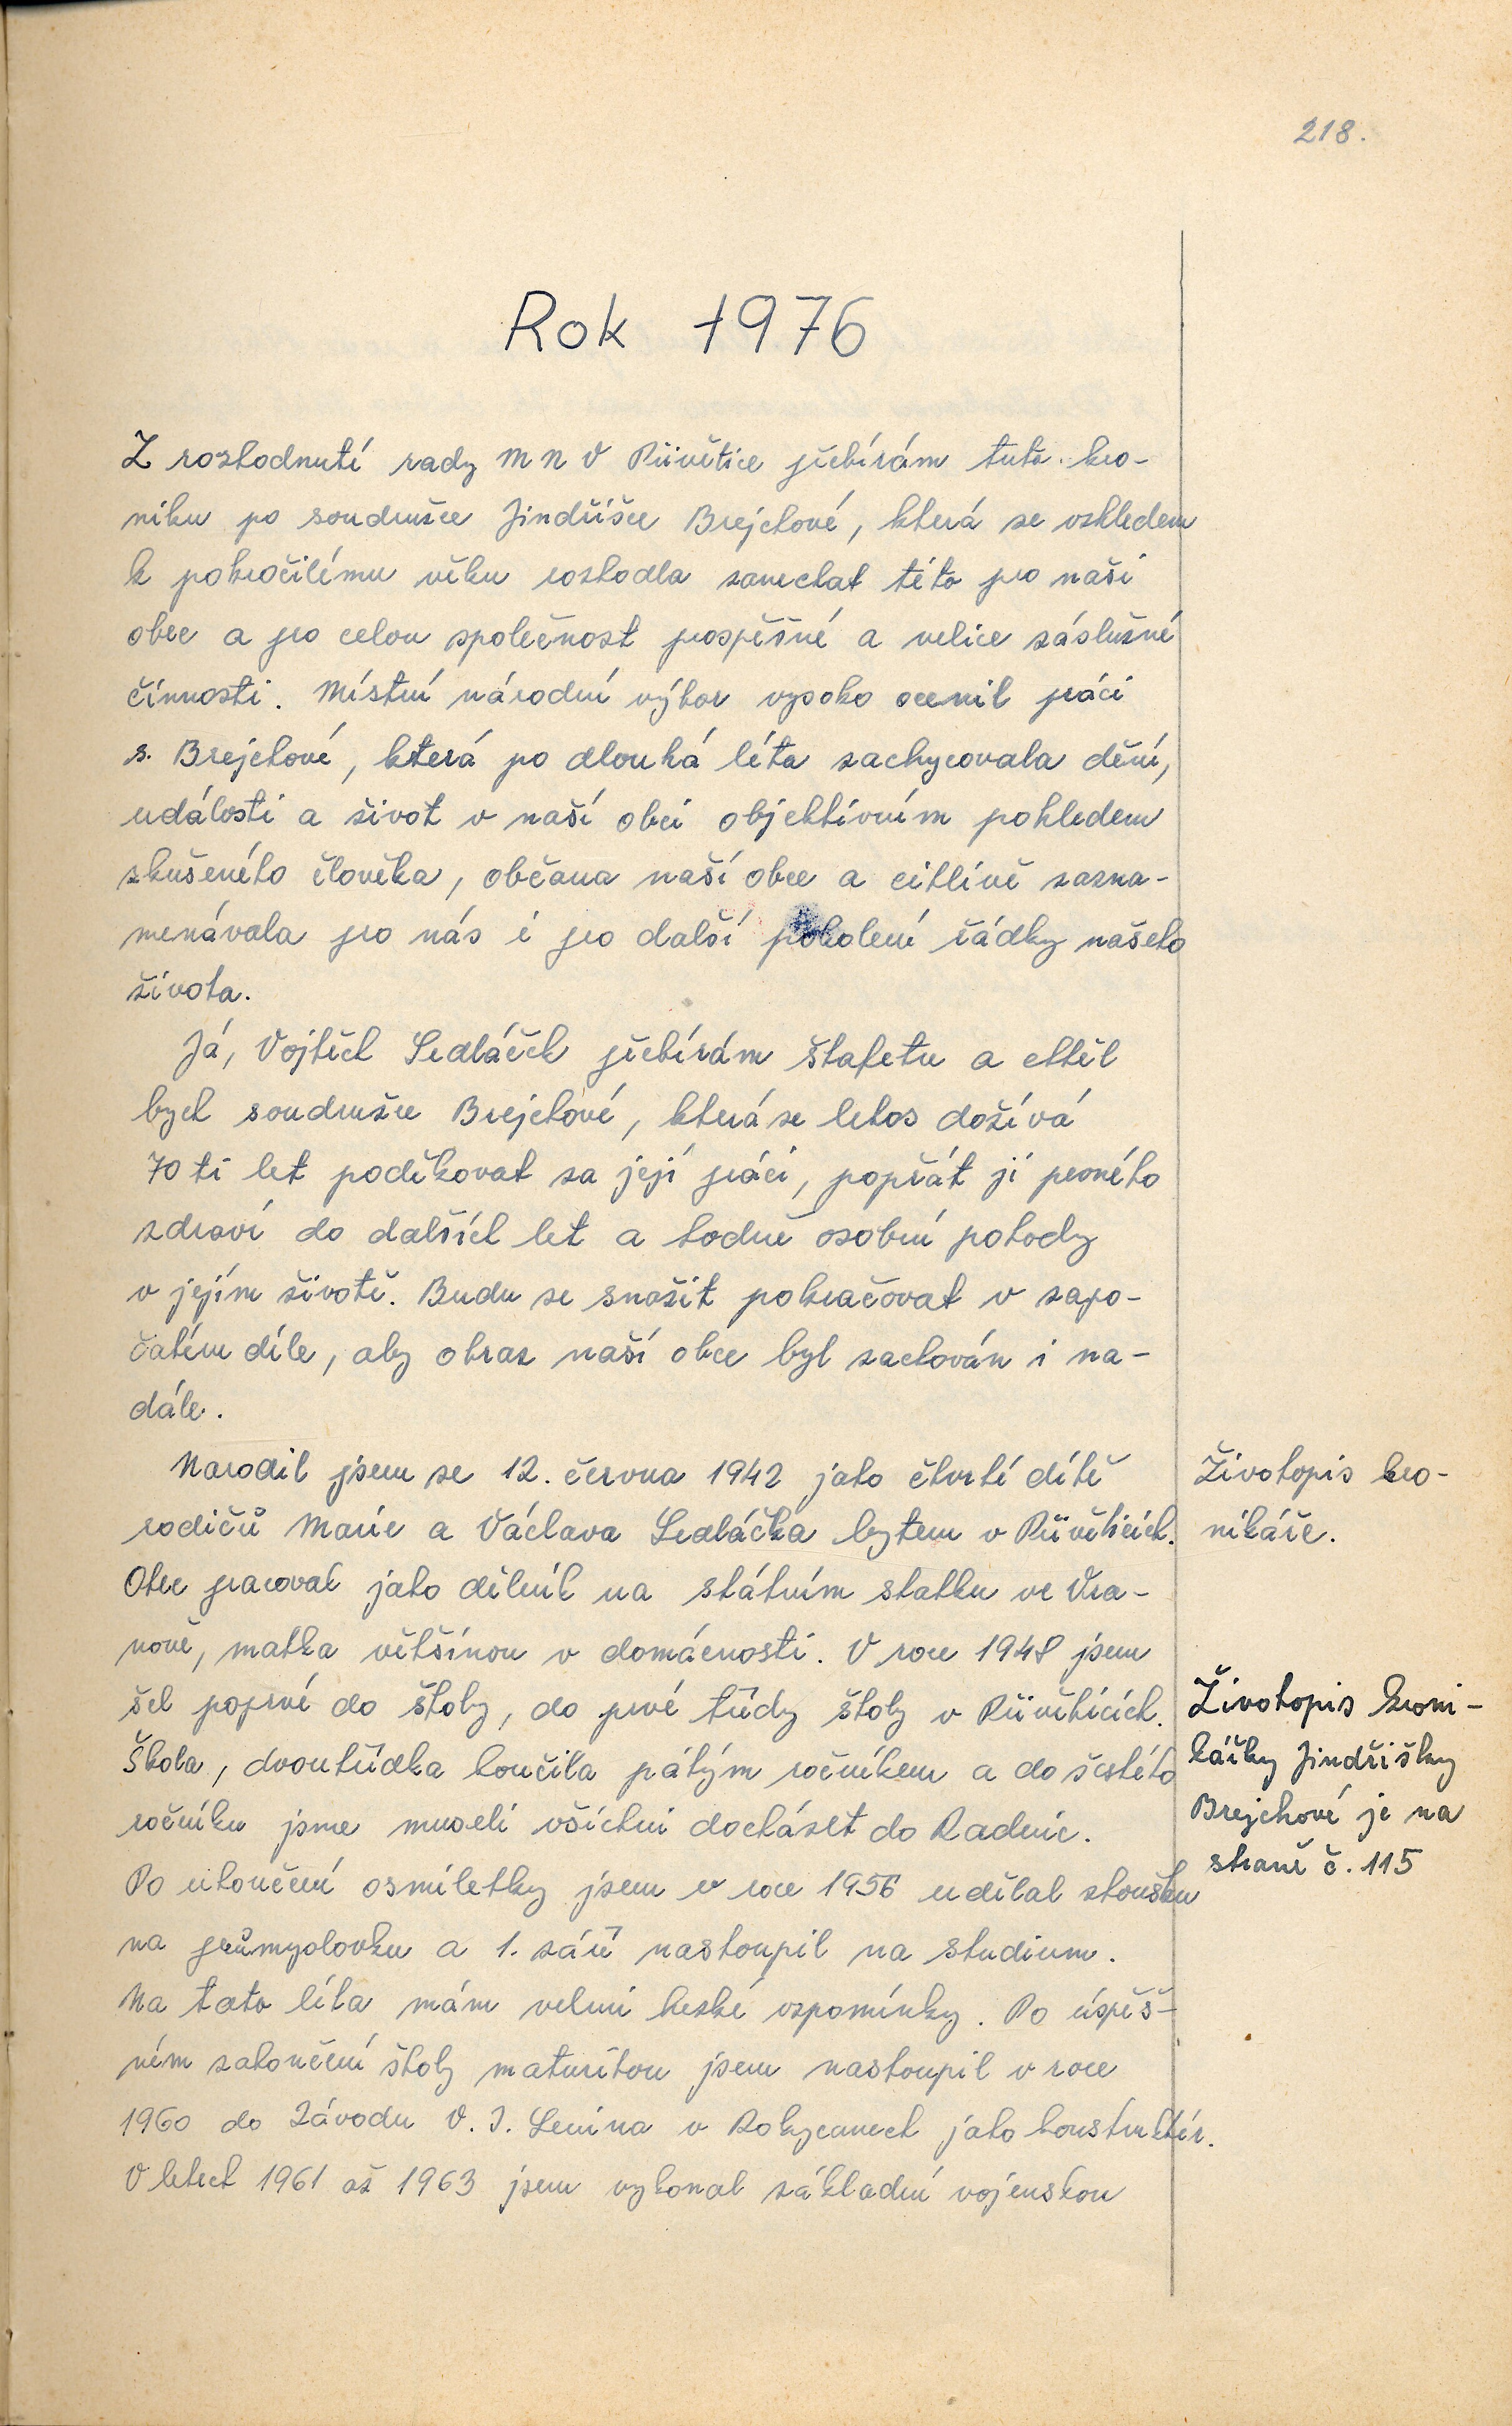 218.
Rok 1976
Z rozhodnutí rady MNV Přívětice přebírám tuto kro-
niku po soudružce Jindřišce Brejchové, která se vzhledem
k pokročilému věku rozhodla zanechat této pro naši
obec a pro celou společnost prospěšné a velice záslužné
činnosti. Místní národní výbor vysoko ocenil práci
s. Brejchové, která po dlouhá léta zachycovala dění,
události a život v naší obci objektivním pohledem
zkušeného člověka, občana naší obce a citlivě zazna-
menávala pro nás i pro další pokolení řádky našeho
života.
Já, Vojtěch Sedláček přebírám štafetu a chtěl
bych soudružce Brejchové, která se letos dožívá
70ti let poděkovat za její práci, popřát jí pevného
zdraví do dalších let a hodně osobní pohody
v jejím životě. Budu se snažit pokračovat v zapo-
čatém díle, aby obraz naší obce byl zachován i na-
dále.
Narodil jsem se 12. června 1942 jako čtvrté dítě
rodičů Marie a Václava Sedláčka bytem v Přívěticích.
Otec pracoval jako dělník na státním statku ve Vra-
nově, matka většinou v domácnosti. V roce 1948 jsem
šel poprvé do školy, do prvé třídy školy v Přívěticích.
Škola, dvoutřídka končila pátým ročníkem a do šestého
ročníku jsme museli všichni docházet do Radnic.
Po ukončení osmiletky jsem v roce 1956 udělal zkoušku
na průmyslovku a 1. září nastoupil na studium.
Na tato léta mám velmi hezké vzpomínky. Po úspěš-
ném zakončení školy maturitou jsem nastoupil v roce
1960 do Závodu V. I. Lenina v Rokycanech jako konstruktér.
V letech 1961 až 1963 jsem vykonal základní vojenskou
Životopis kro-
nikáře.
Životopis kroni-
kářky Jindřišky
Brejchové je na
straně č. 115